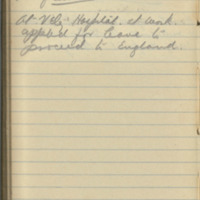 At Vet. Hospital. at work.
applied for leave to
proceed to England.